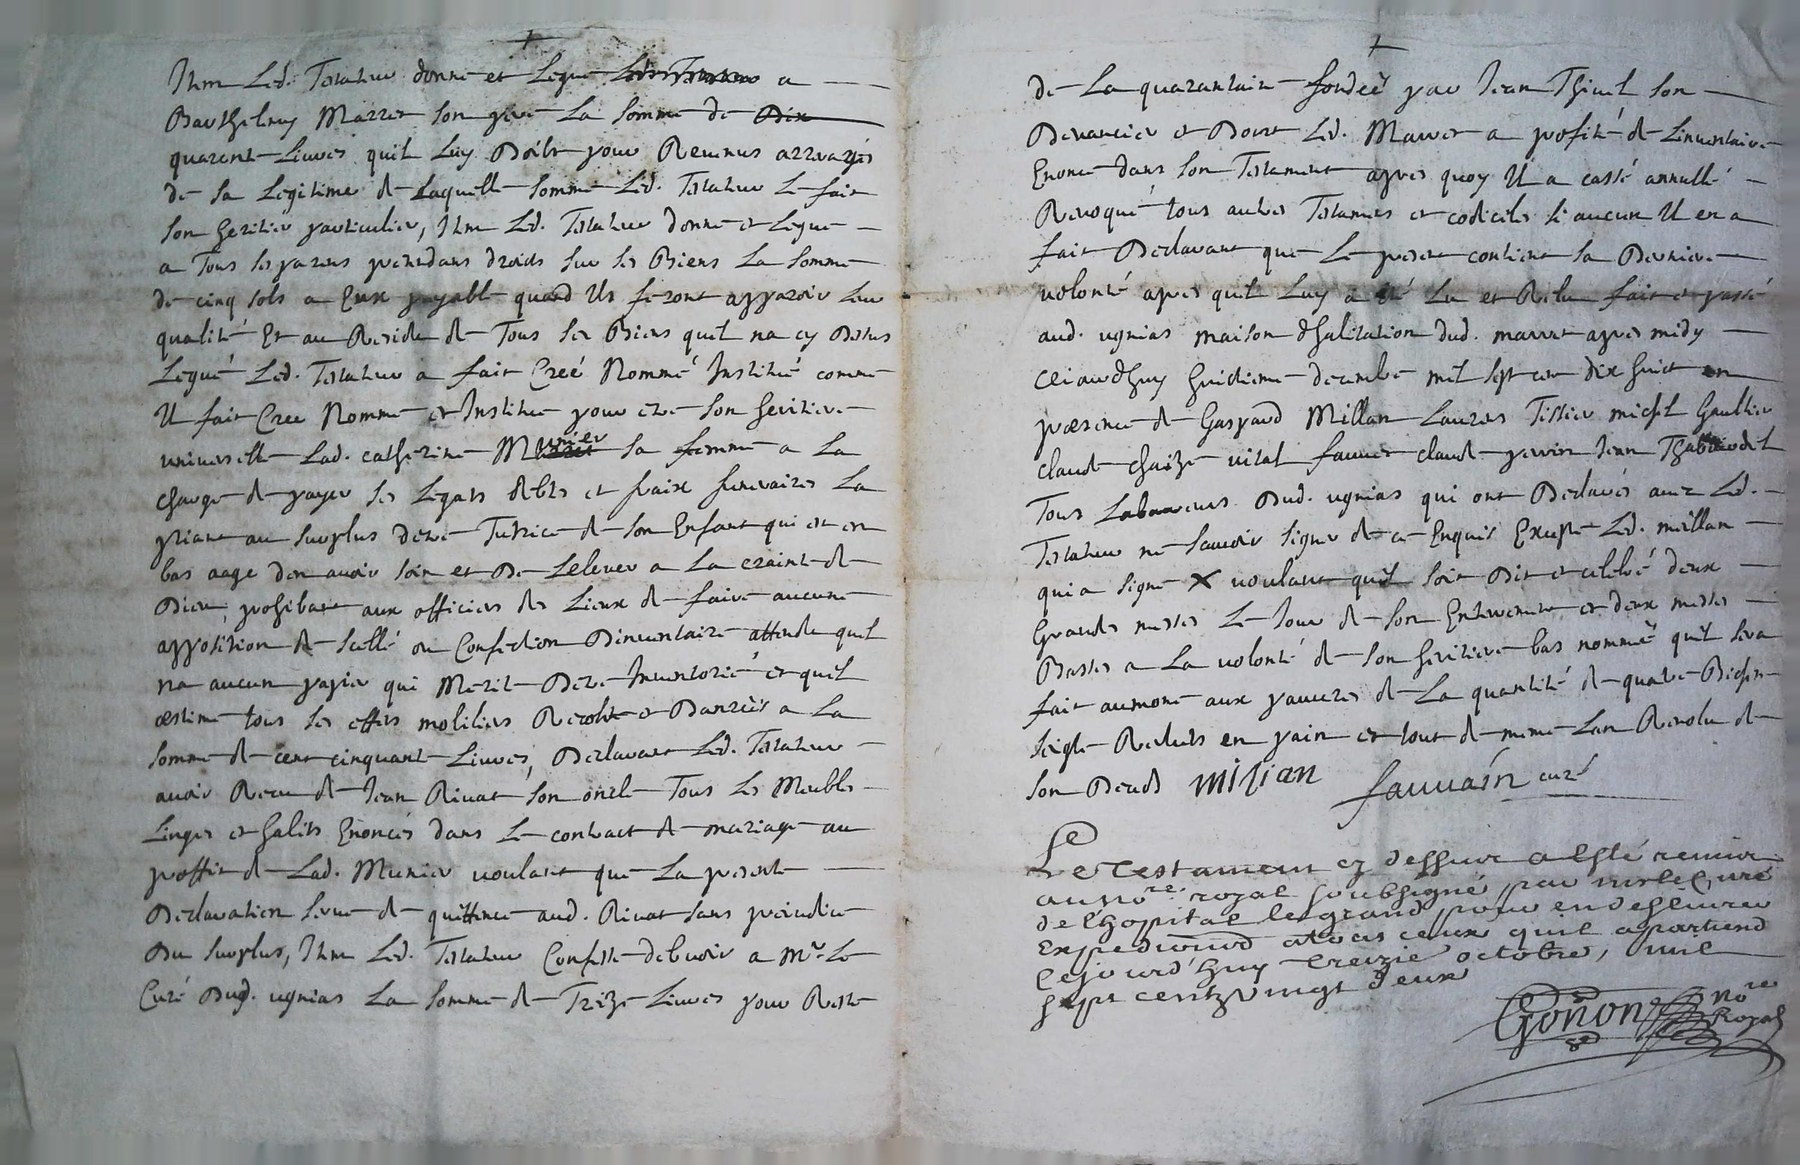 Item Led. Testateur donne et Legue Led. Testateur a
Barthelmy Marret son frere La somme de Dix
quarent Livres quil Luy Doibt pour Revenus arreragés
de sa Legitime de Laquelle somme Led. Testateur Le fait
son heritier particulier, Item Led. Testateur donne et Legue
a Tous ses parens pretendans droits sur ses Biens La somme
de cinq sols a Eux payable quand Ils feront apparoir leur
qualité Et au Residu de Tous ses Biens quil na cy Dessus
Legué Led. Testateur a fait Creé Nommé Institué comme
Il fait Cree Nomme et Institue pour etre son heritiere
universelle Lad. catherine Munier sa femme a La
charge de payer ses Legats debts et fraix funeraires La
priant au surplus detre Tutrice de son Enfant qui est en
bas aage den avoir soin et De Leslever a La crainte de
Dieu prohibant aux officiers des Lieux de faire aucune
apposition de scellé ou Confection Dinventaire attendu quil
na aucun papier qui Merite Detre Inventorié et quil
æstime tous ses effets mobiliers Recolte et Danrées a La
somme de cent cinquant Livres, Declarant Led. Testateur
avoir Receu de Jean Rivat son oncle Tous Les Meubles
Linges et habits Enoncés dans Le contract de mariage au
proffit de Lad. Munier voulant que La presente
Declaration serve de quittence aud. Rivat sans prejudice
Du surplus, Item Led. Testateur Confesse debvoir a Mr. Le
Curé Dud. ugnias La somme de Treize Livres pour Reste
de La quarantaine fondeé par Jean Thivel son
Devancier et Dont Led. Marret a profité de Linventaire
Enoncé dans son Testament apres quoy Il a cassé annullé
Revoqué tous autres Testamens et codiciles si aucun Il en a
fait Declarant que Le present contient sa Derniere
volonté apres quil Luy a eté Lu et Relu fait et passé
aud. ugnias maison dhabitation dud. marret apres midy
Cejourdhuy huictieme decembre mil sept cent dix huict en
præsence de Gaspard Millan Laurens Tissier michel Gaultier
claude chaize vital fauvet claude perrin Jean
Tous Laboureurs Dud. ugnias qui ont Declarés avec Led.
Testateur ne scavoir signer de ce Enquis Excepté Led. millan
qui a signé X voulant quil soit Dit et celebré deux
Grandes messes Le Jour de son Enterrement et deux messes
Basses a La volonté de son heritiere bas nommé quil sera
fait aumone aux pauvres de La quantité de quatre Bichets
seigle Reduits en pain et tout de meme Lan Revolu de
son Deceds milian fauvain curé
Le Testament cy dessure a esté remis
au nore. royal soubsigné par mre le Curé
de l'hopital legrand pour en deslivrer
expeditions atous ceux quil apartiend
Cejourd'huy treizie octobre, mil
sept centz vingt deux
Gonon nore
Royal